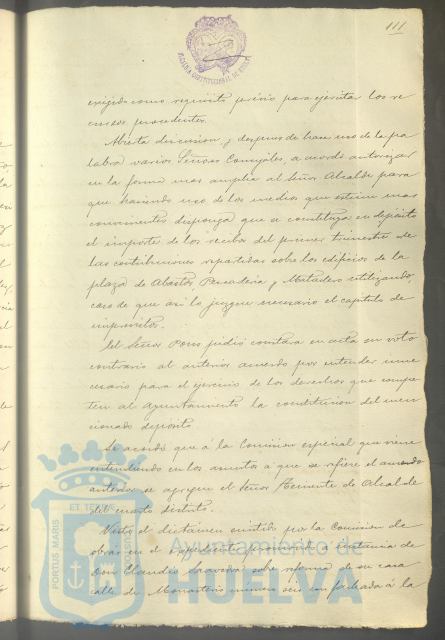 111
ALCALDIA CONSTITUCIONAL DE HUELVA
exigido como requisito prévio para ejercitar los re
cursos procedentes.
Abierta discusion, y despues de hacer uso de la pa
labra varios Señores Concejales, se acordó autorizar
en la forma mas amplia al Señor Alcalde para
que haciendo uso de los medios que estime mas
convenientes disponga que se constituya en depósito
el importe de los recibos del primer trimestre de
las contribuciones repartidas sobre los edificios de la
plaza de Abastos, Pescaderia y Matadero utilizando,
caso de que asi lo juzgue necesario el capitulo de
imprevistos.
El Señor pidió constara en acta su voto
contrario al anterior acuerdo por entender inne
cesario para el ejercicio de los derechos que compe
ten al Ayuntamiento la constitucion del men
cionado depósito
Se acordó que á la Comision especial que viene
entendiendo en los asuntos a que se refiere el acuerdo
anterior se agregue el Señor Teniente de Alcalde
del cuarto distrito.
Visto el dictamen emitido por la Comision de
obras en el expediente promovido a instancia de
Don Claudio Saavedra sobre reforma de su casa
calle de Monasterio número seis en fachada á la
ET TERRE
PORTUS MARIS
Ayuntamiento de
HUELVA